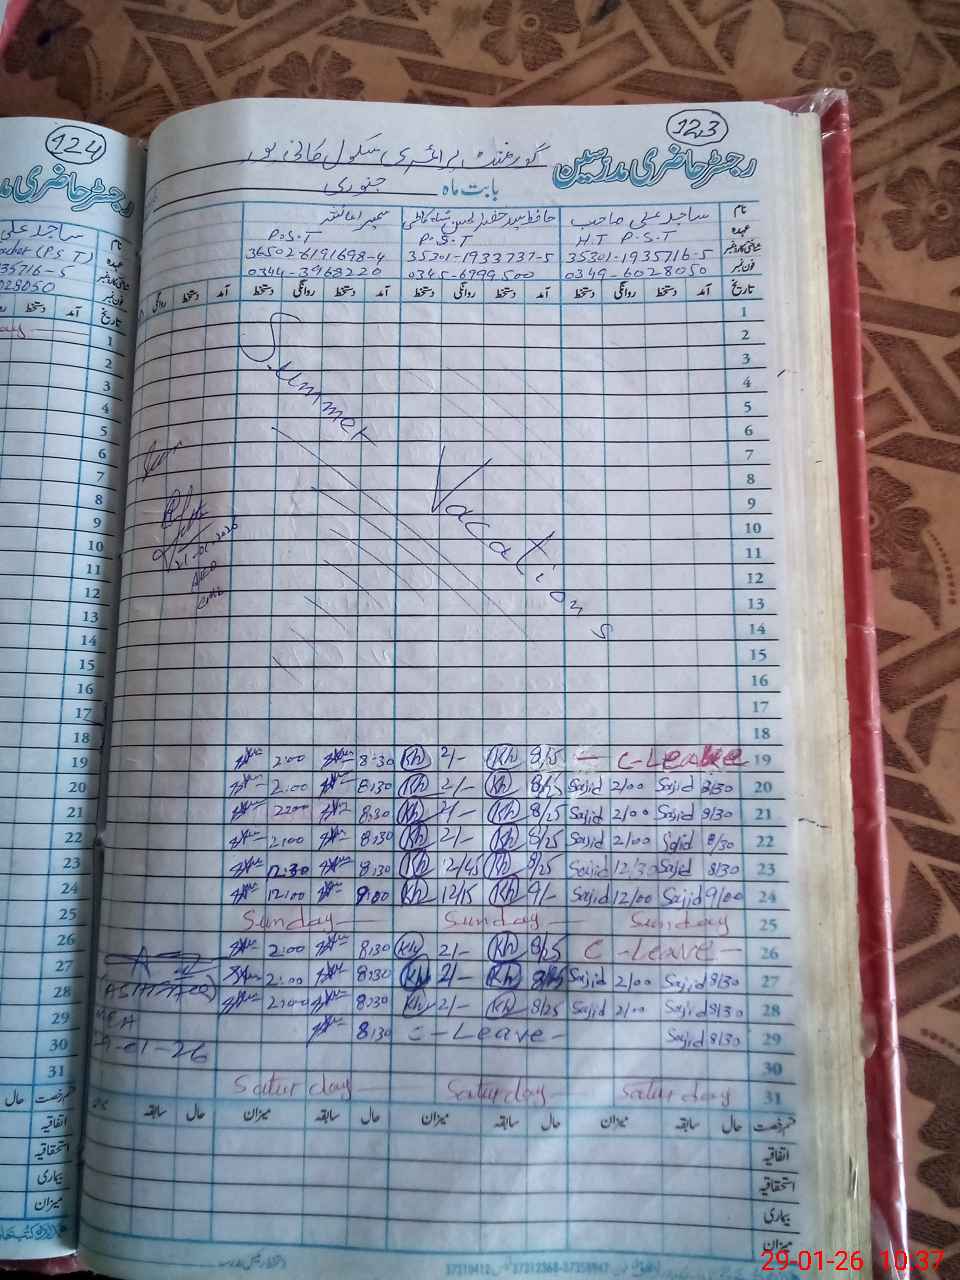 123
رجسٹر حاضری مدرسین
گورنمنٹ پرائمری سکول
بابت ماہ جنوری
نام ساجد علی صاحب
عہدہ H.T P.S.T P.S.T P.S.T
35301-1935716-5 35301-1933737-5 36502-6191698-4
فون نمبر 0349-6028050 0345-6799500 0344-3968220
تاریخ آمد دستخط روانگی دستخط آمد دستخط روانگی دستخط آمد دستخط روانگی دستخط
1
2
3
4
5
6
7
8
9
10
11
12
13
14
15
16
17
18
Summer Vacations
2:00 8:30 Kh 2/- Kh 8/25 C-Leave 19
2:00 8:30 Kh 2/- Kh 8/25 Sajid 2/00 Sajid 8/30 20
2:00 8:30 Kh 2/- Kh 8/25 Sajid 2/00 Sajid 8/30 21
2:00 8:30 Kh 2/- Kh 8/25 Sajid 2/00 Sajid 8/30 22
12:30 8:30 Kh 12/45 Kh 8/25 Sajid 12/30 Sajid 8/30 23
12:00 9:00 Kh 12/15 Kh 9/- Sajid 12/00 Sajid 9/00 24
Sunday Sunday Sunday 25
2:00 8:30 Kh 2/- Kh 8/25 C-Leave 26
2:00 8:30 Kh 2/- Kh 8/25 Sajid 2/00 Sajid 8/30 27
2:00 8:30 Kh 2/- Kh 8/25 Sajid 2/00 Sajid 8/30 28
8:30 C-Leave Sajid 8/30 29
30
Saturday Saturday Saturday 31
قسم رخصت حال سابقہ میزان حال سابقہ میزان حال سابقہ میزان حال سابقہ
اتفاقیہ
استحقاقیہ
بیماری
میزان
124
رجسٹر حاضری
نام ساجد علی
عہدہ (P.S.T)
35716-5
فون نمبر 028050
تاریخ آمد دستخط
1
2
3
4
5
6
7
8
9
10
11
12
13
14
15
16
17
18
19
20
21
22
23
24
25
26
27
28
29
30
31
قسم رخصت حال
اتفاقیہ
استحقاقیہ
بیماری
میزان
29-01-26 10:37